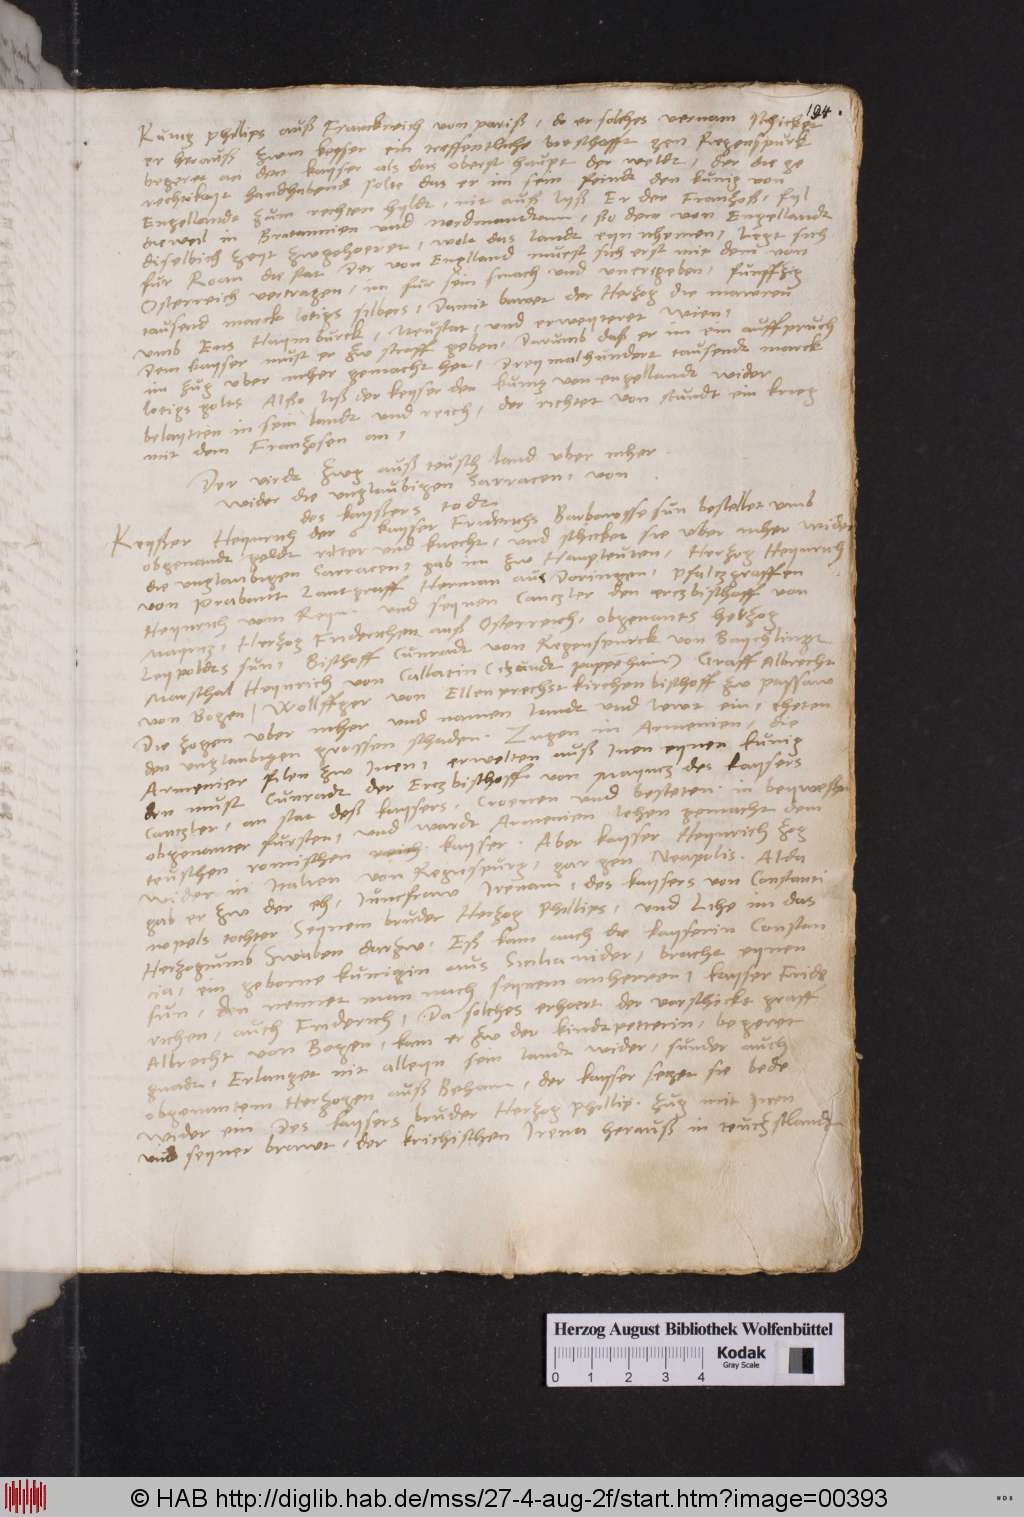 194.
Kunig Philips auß Franckreich von pariß, do er solches vernam schicket
er herauß zwm keyser ein treffentliche bothschafft gen Regenspurk
begeret an den kayser als das oberst haupt der weldt, der die ge
rechtikayt handhabend solte das er im sein feindt den kunig von
Engellandt zum rechten hyldt, nit auß ließ. Er der Franzoß, fyl
dieweil in Britannien und nordmandiam, So dem von Engellandt
diselbich zeyt zwgehoeret, wolt das landt eyn nhemen, legt sich
fur Roan die stat. Der von Englland muest sich erst mit dem von
Osterreich vertragen, im fur sein smach und untergeben, funffzig
tausend marck lotigs silbers, Damit bawet der Herzog die mawren
umb Ens Haymburck, Neustat, und erweyteret Wien,
Dem kayser must er zw straff geben, Darumb daß er im ein auffspruch
im zug uber mher gemacht het, Dreymalhundert tausendt marck
lotigs golts Also ließ der keyser den kunig von engellandt wider
belaytten in sein landt und reich, der richtet von stundt ein krieg
mit dem Franzosen an,
Der vierdt zwg auß teusch land uber mher
wider die unglaubigen Sarracen, von
des kayßers todt
Keyßer Heynrich der 6 kayser Friderichs Barbarosse sun bestellet umb
obgenandt geldt ritter und knecht, und schicket sie uber mher wider
die unglaubigen Sarracen, gab im zw Haupteuten, Herzog Heynrich
von Prabant Lantgraff Herman aus Doringen, Pfaltzgraffen
Heynrich vom Reyn. und seynen Cantzler den ertzbischoff von
Mayntz, Herzog Friderichen auß Osterreich, obgenants hertzog
Leypoldts sun, Bischoff Cunradt von Regenspurck von
Marschal Heynrich von Callatin (itzundt pappehaim) Graff Albrecht
von Bogen, Wolffger von Ellenprechstkirchen bischoff zw passaw
Die zogen uber mher und namen landt und lewt ein, theten
den unglaubigen grossen schaden. Zugen in Armenien, die
Armenier filen zw inen, erwelten auß inen eynen kunig
den must Cunradt der Ertzbischoff von Mayntz des kaysers
Cantzler, an stat deß kaysers, Croenen und besteten. in beywesen
obgenanter fursten, und wardt Armenien lehen gemacht dem
teuschen romischen reich. kayser. Aber kayser Heynrich zog
wider in Italien von Regenspurg, gar gen Neapolis. Alda
gab er zw der eh, Junckfraw Irenam, des kaysers von Constanti
nopels tochter Seynem bruder Herzog Phillips, und Lihe im das
Herzogtumb Swaben darzw. Eß kam auch die kayserin Constan
cia, ein geborne kunigin aus Sicilia nider, bracht eynen
sun, den nennet man nach seynem anherren, kayser Fride
richen, auch Friderich, Da solches erhoert der vorschickt graff
Albrecht von Bogen, kam er zw der kindtpetterin, begeret
gnadt, Erlanget nit alleyn sein landt wider, sunder auch
obgenantem Herzogen auß Beham, der kayser setzet sie bede
wider ein Des kaysers bruder Herzog phillip. zug mit inen
und seyner brawt, der krichischen Irena herauß in teutzschlandt
Herzog August Bibliothek Wolfenbüttel
Kodak
Gray Scale
0 1 2 3 4
© HAB http://diglib.hab.de/mss/27-4-aug-2f/start.htm?image=00393